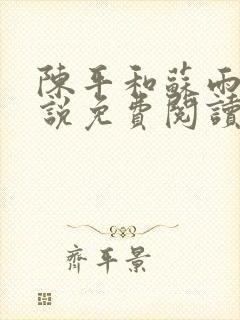 陳平和蘇雨
說免費閱讀
齊平景